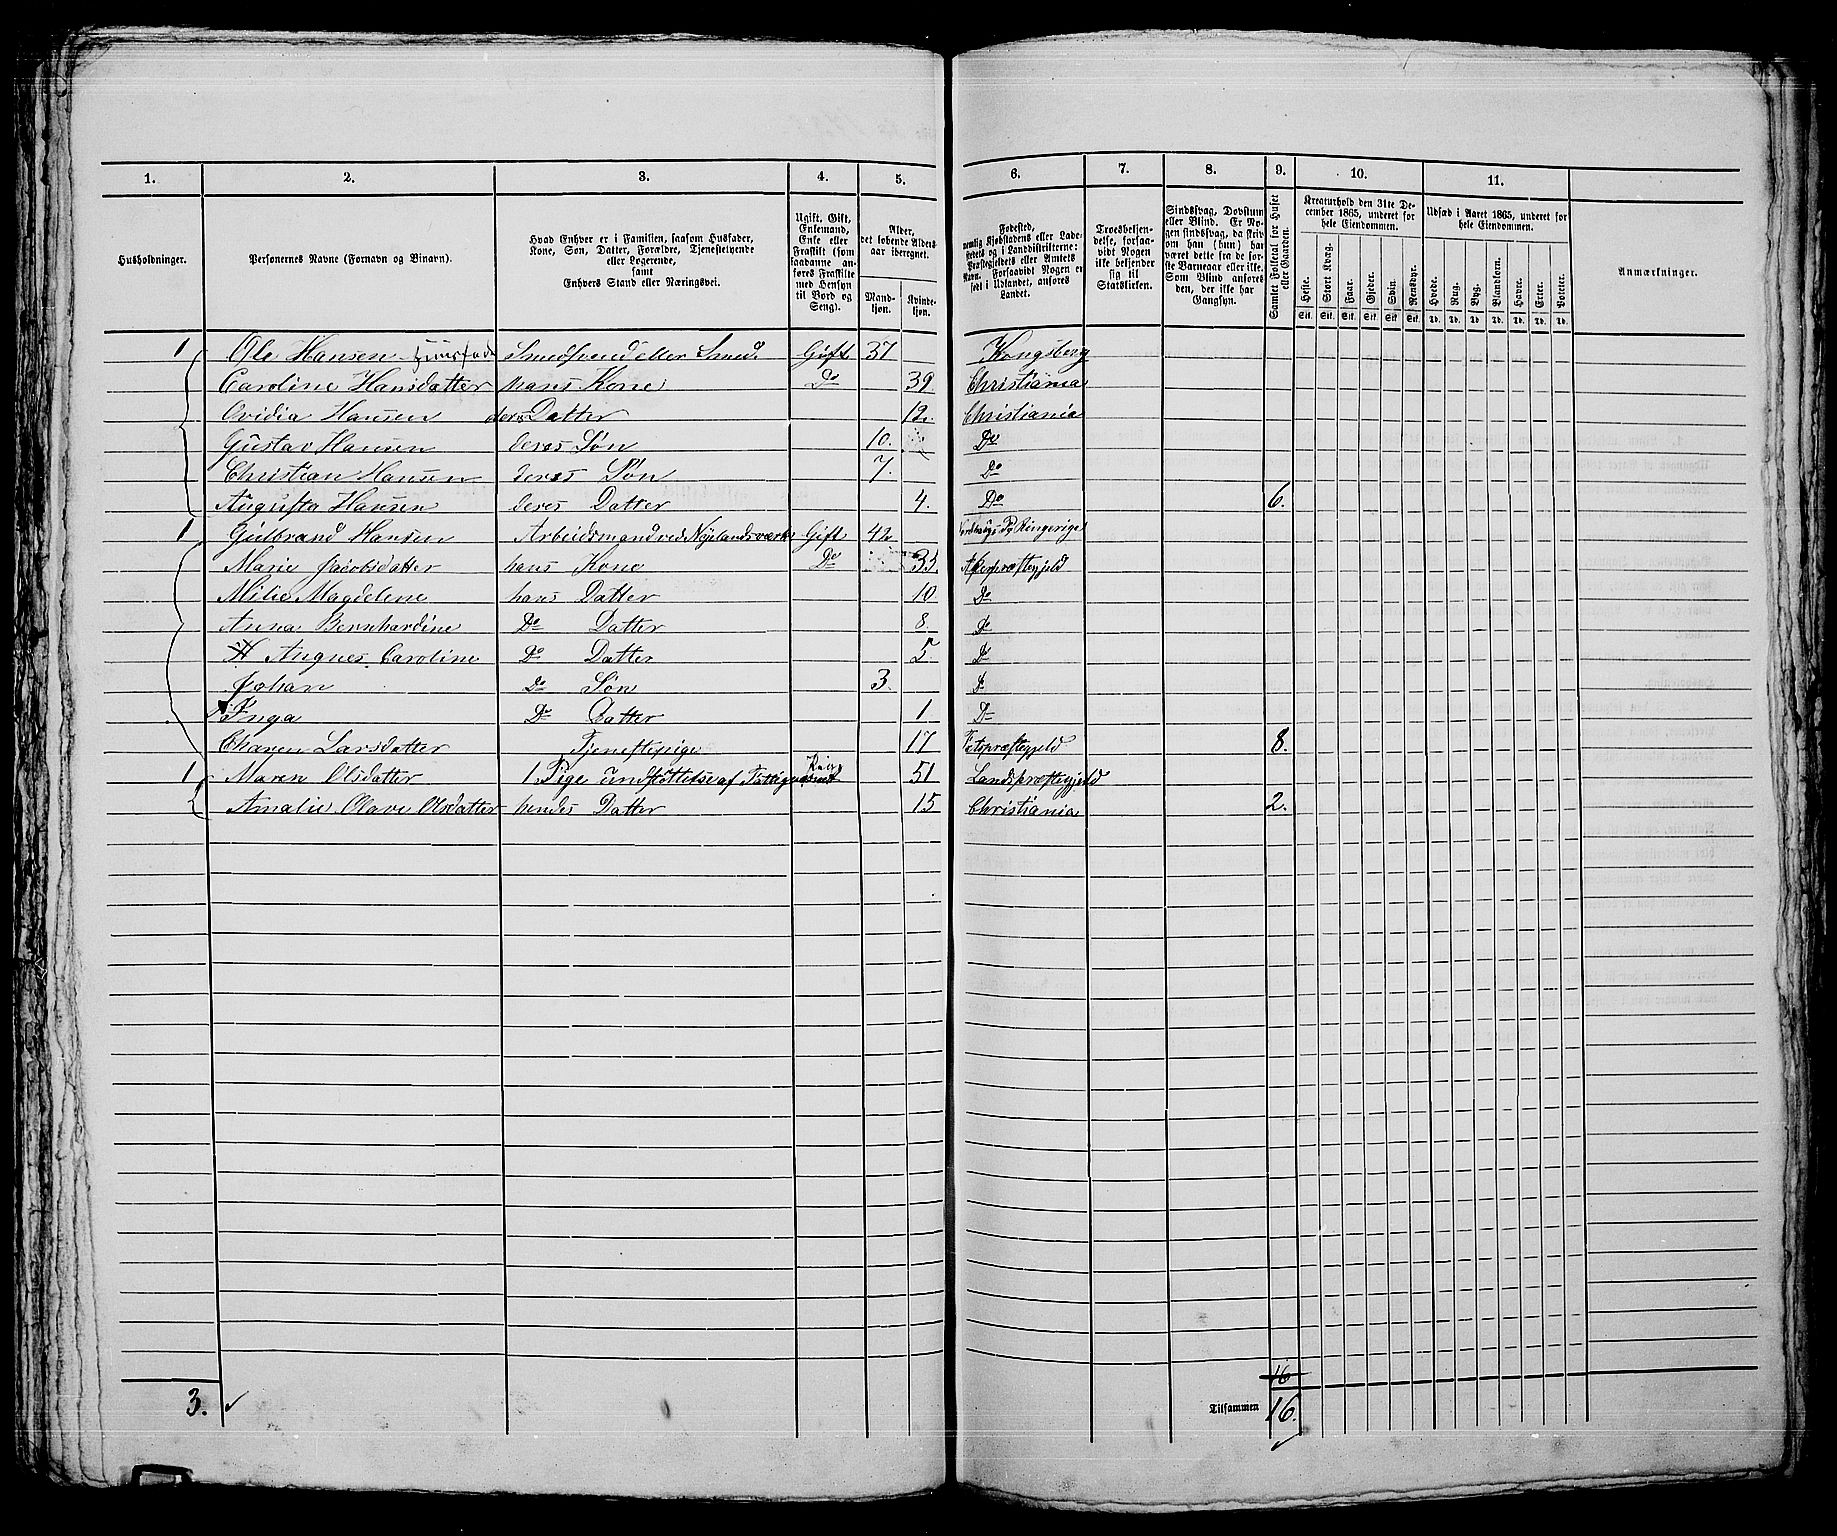 1. 2. 3. 4. 5. 6. 7. 8. 9. 10. 11.
Husholdninger.
Personernes Navne (Fornavn og Binavn).
Hvad Enhver er i Familien, saasom Husfader,
Kone, Søn, Datter, Forældre, Tjenestetyende
eller Logerende,
samt
Enhvers Stand eller Næringsvei.
Ugift, Gift,
Enkemand,
Enke eller
Fraskilt (som
saadanne an-
føres Fraskilte
med Hensyn
til Bord og
Seng).
Alder,
det løbende Alders-
aar iberegnet.
Mand-
kjøn.
Kvinde-
kjøn.
Fødested,
nemlig Kjøbstadens eller Lade-
stedets og i Landdistrikterne:
Præstegjeldets eller Amtets
Navn. Forsaavidt Nogen er
født i Udlandet, anføres
Landet.
Troesbekjen-
delse, forsaa-
vidt Nogen
ikke bekjender
sig til
Statskirken.
Sindssvag, Døvstum
eller Blind. Er No-
gen sindssvag, da skriv
om han (hun) har
været dette fra de før-
ste Barneaar eller ikke.
Som Blind anføres
den, der ikke har
Gangsyn.
Samlet Folketal for Huset
eller Gaarden.
Kreaturhold den 31te De-
cember 1865, underet for
hele Eiendommen.
Heste. Stort Kvæg. Faar. Gjeder. Svin. Rensdyr.
Stk. Stk. Stk. Stk. Stk. Stk.
Udsæd i Aaret 1865, underet for
hele Eiendommen.
Hvede. Rug. Byg. Blandkorn. Havre. Erter. Poteter.
Td. Td. Td. Td. Td. Td. Td.
Anmærkninger.
1 Ole Hansen Huusfader Smedsvend eller Smed. Gift 37 Kongsberg
Caroline Hansdatter hans Kone Do 39. Christiania
Ovidia Hansen deres Datter 12. Christiania
Gustav Hansen deres Søn 10. Do
Christian Hansen deres Søn 7. Do
Augusta Hansen deres Datter 4. Do 6.
1 Gulbrand Hansen Arbeidsmand ved Nylandsværk Gift 42 Ringerige
Marie Jacobsdatter hans Kone Do 35. Akerpræstegjeld
Milie Magdelene hans Datter 10 Do
Anna Bernhardine Do Datter 8. Do
Angnes Caroline Do Datter 5. Do
Johan Do Søn 3. Do
Inga Do Datter 1 Do
Charen Larsdatter Tjenestepige 17 Totopræstegjeld 8.
1 Maren Olsdatter 1 Pige undstøttelse af 51 Landspræstegjeld
Amalie Olave Olsdatter hendes Datter 15 Christiania 2.
3.
16
Tilsammen 16.